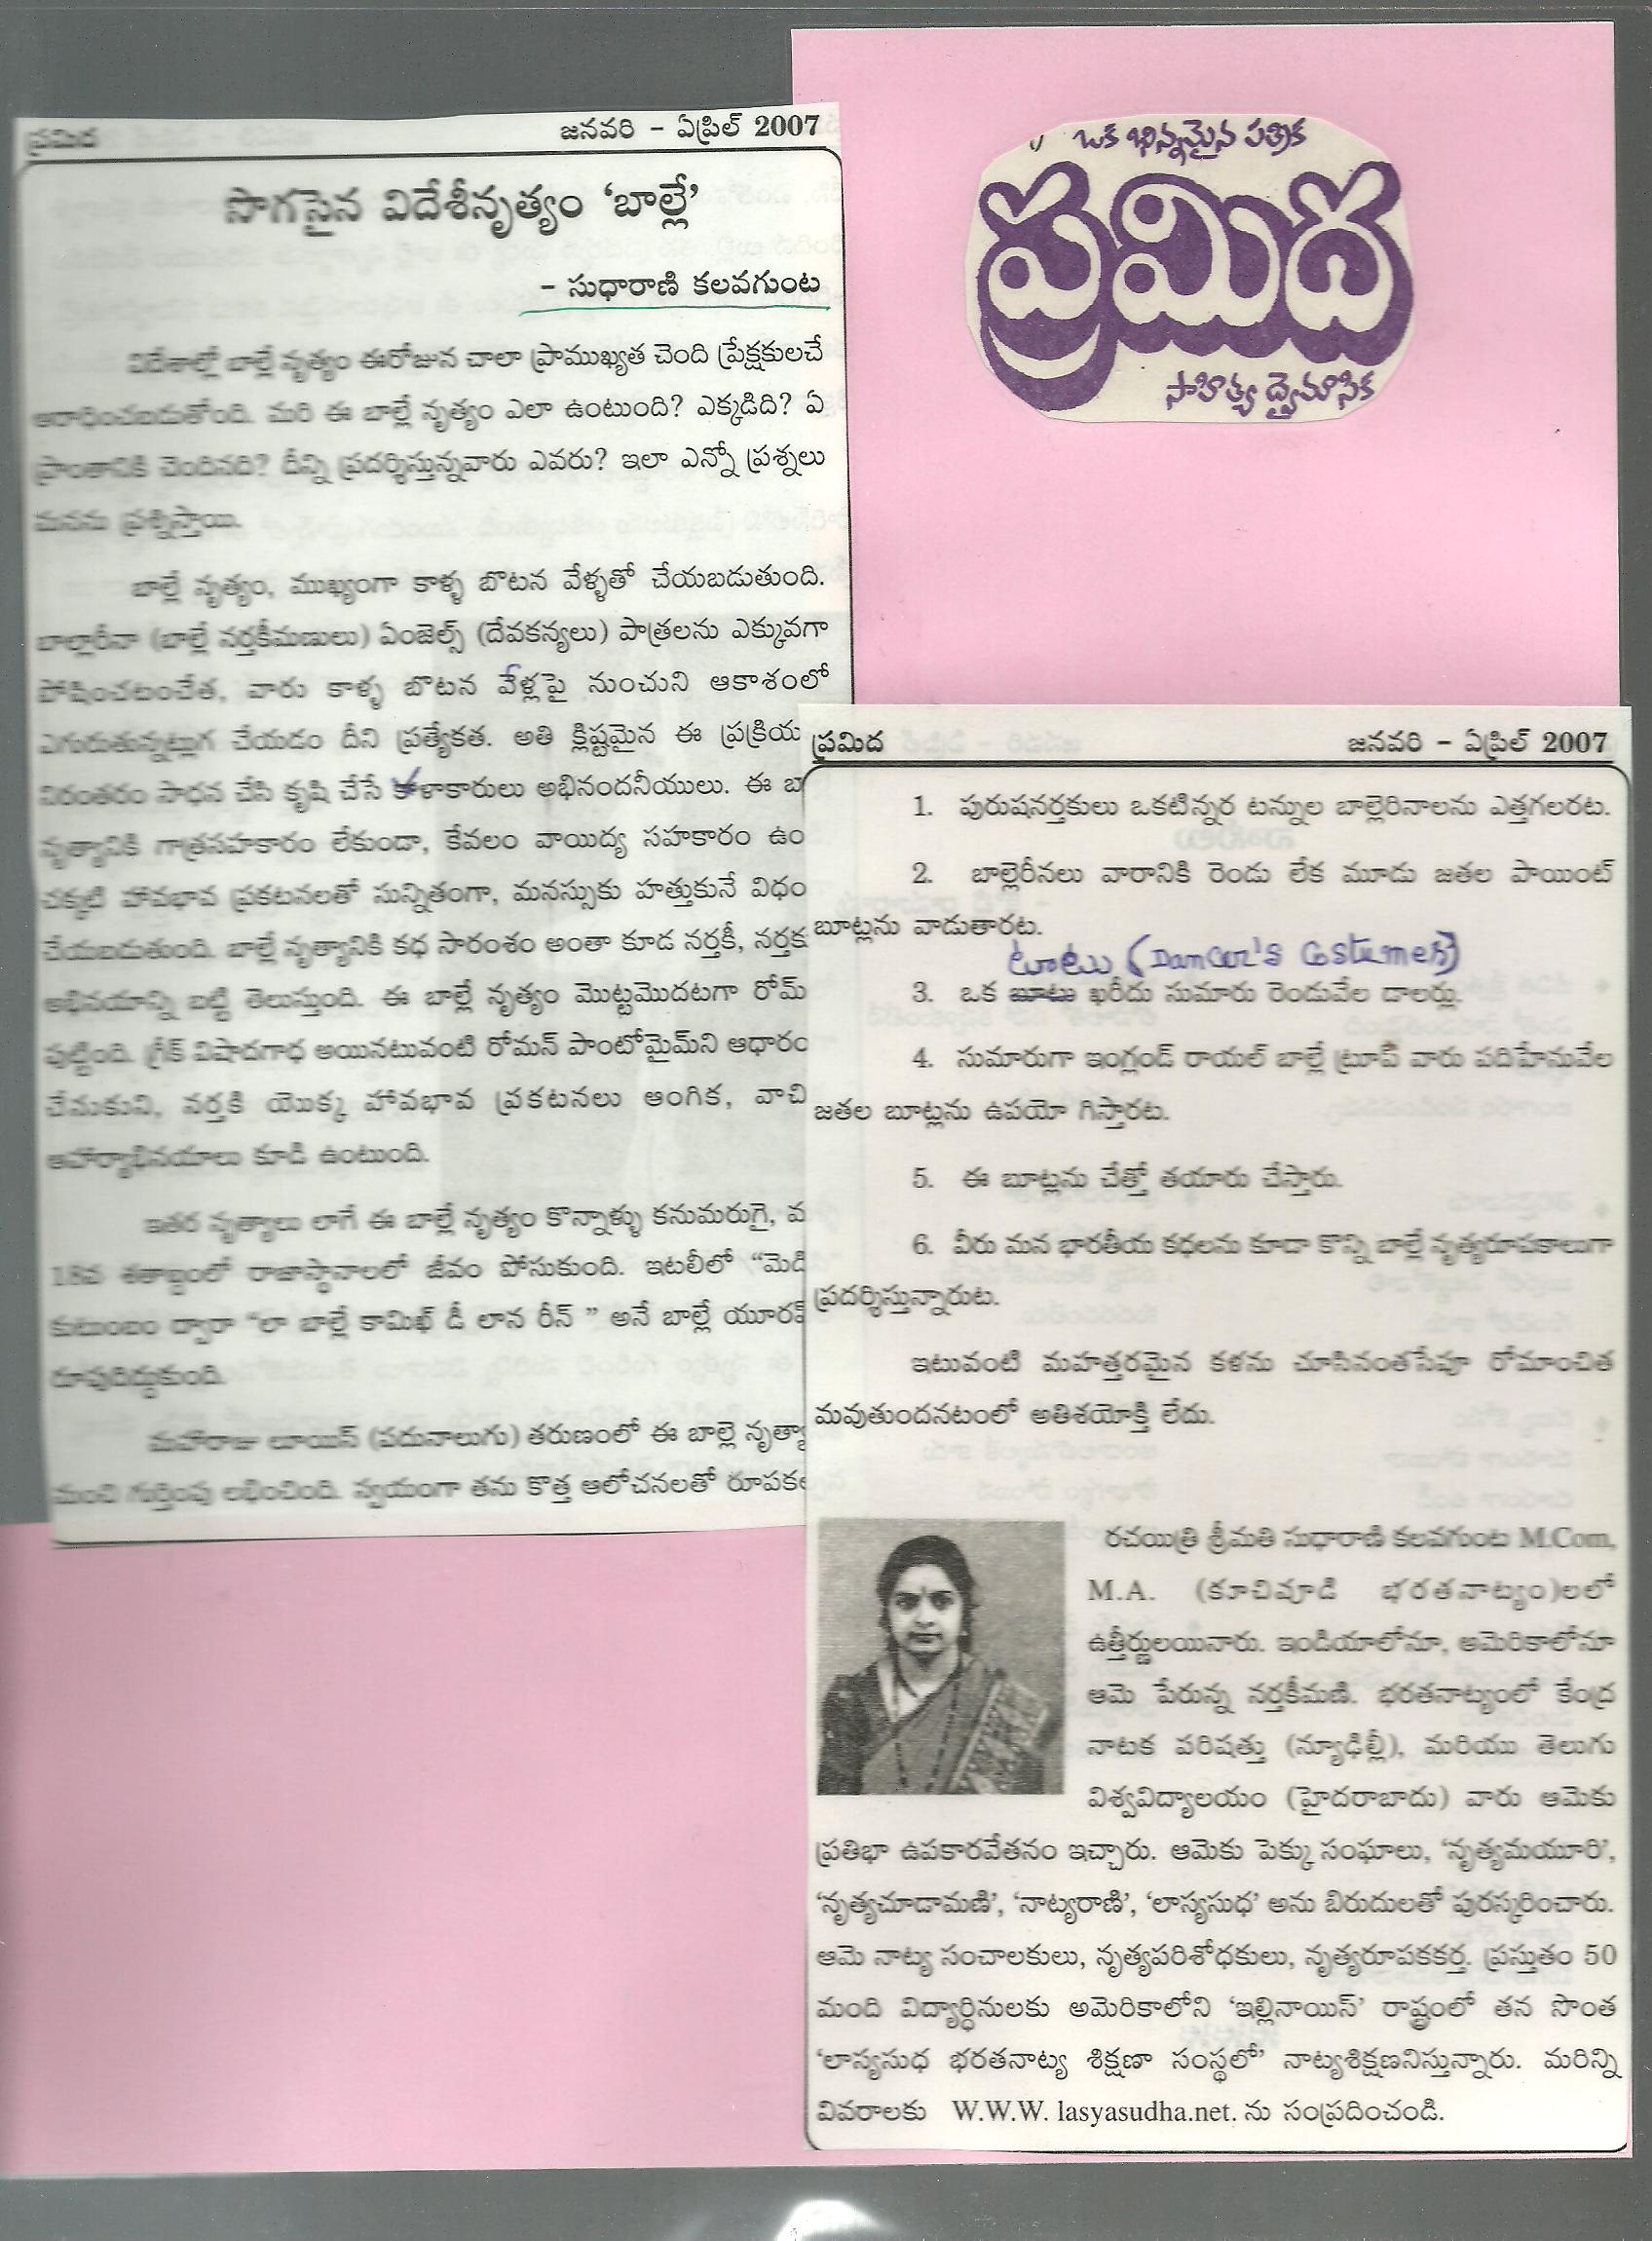 ప్రమిద జనవరి - ఏప్రిల్ 2007
సొగసైన విదేశీనృత్యం ‘బాల్లే’
- సుధారాణి కలవగుంట
విదేశాల్లో బాల్లే నృత్యం ఈరోజున చాలా ప్రాముఖ్యత చెంది ప్రేక్షకులచే
ఆరాధించబడుతోంది. మరి ఈ బాల్లే నృత్యం ఎలా ఉంటుంది? ఎక్కడిది? ఏ
ప్రాంతానికి చెందినది? దీన్ని ప్రదర్శిస్తున్నవారు ఎవరు? ఇలా ఎన్నో ప్రశ్నలు
మనను ప్రశ్నిస్తాయి.
బాల్లే నృత్యం, ముఖ్యంగా కాళ్ళ బొటన వేళ్ళతో చేయబడుతుంది.
బాల్లారీనా (బాల్లే నర్తకీమణులు) ఏంజెల్స్ (దేవకన్యలు) పాత్రలను ఎక్కువగా
పోషించటంచేత, వారు కాళ్ళ బొటన వేళ్లపై నుంచుని ఆకాశంలో
ఎగురుతున్నట్లుగ చేయడం దీని ప్రత్యేకత. అతి క్లిష్టమైన ఈ ప్రక్రియ
నిరంతరం సాధన చేసి కృషి చేసే కళాకారులు అభినందనీయులు. ఈ బా
నృత్యానికి గాత్రసహకారం లేకుండా, కేవలం వాయిద్య సహకారం ఉం
చక్కటి హావభావ ప్రకటనలతో సున్నితంగా, మనస్సుకు హత్తుకునే విధం
చేయబడుతుంది. బాల్లే నృత్యానికి కధ సారంశం అంతా కూడ నర్తకీ, నర్తక
అభినయాన్ని బట్టి తెలుస్తుంది. ఈ బాల్లే నృత్యం మొట్టమొదటగా రోమ్
పుట్టింది. గ్రీక్ విషాదగాధ అయినటువంటి రోమన్ పాంటోమైమ్‌ని ఆధారం
చేసుకుని, నర్తకి యొక్క హావభావ ప్రకటనలు ఆంగిక, వాచి
ఆహార్యాభినయాలు కూడి ఉంటుంది.
ఇతర నృత్యాలు లాగే ఈ బాల్లే నృత్యం కొన్నాళ్ళు కనుమరుగై, మ
18వ శతాబ్దంలో రాజాస్థానాలలో జీవం పోసుకుంది. ఇటలీలో “మెది
కుటుంబం ద్వారా “లా బాల్లే కామిఖ్ డీ లాన రీన్ ” అనే బాల్లే యూరక్
రూపుదిద్దుకుంది.
మహారాజు లూయిస్ (పదునాలుగు) తరుణంలో ఈ బాల్లె నృత్యా
మంచి గుర్తింపు లభించింది. స్వయంగా తను కొత్త ఆలోచనలతో రూపక
ఒక భిన్నమైన పత్రిక
ప్రమిద
సాహిత్య ద్వైమాసిక
ప్రమిద జనవరి - ఏప్రిల్ 2007
1. పురుషనర్తకులు ఒకటిన్నర టన్నుల బాల్లెరినాలను ఎత్తగలరట.
2. బాల్లెరీనలు వారానికి రెండు లేక మూడు జతల పాయింట్
బూట్లను వాడుతారట.
టూటు (Dancer's Costumes)
3. ఒక బూటు ఖరీదు సుమారు రెండువేల డాలర్లు.
4. సుమారుగా ఇంగ్లండ్ రాయల్ బాల్లే ట్రూప్ వారు పదిహేనువేల
జతల బూట్లను ఉపయో గిస్తారట.
5. ఈ బూట్లను చేత్తో తయారు చేస్తారు.
6. వీరు మన భారతీయ కధలను కూడా కొన్ని బాల్లే నృత్యరూపకాలుగా
ప్రదర్శిస్తున్నారుట.
ఇటువంటి మహత్తరమైన కళను చూసినంతసేపూ రోమాంచిత
మవుతుందనటంలో అతిశయోక్తి లేదు.
రచయిత్రి శ్రీమతి సుధారాణి కలవగుంట M.Com,
M.A. (కూచిపూడి భరతనాట్యం)లలో
ఉత్తీర్ణులయినారు. ఇండియాలోనూ, అమెరికాలోనూ
ఆమె పేరున్న నర్తకీమణి. భరతనాట్యంలో కేంద్ర
నాటక పరిషత్తు (న్యూఢిల్లీ), మరియు తెలుగు
విశ్వవిద్యాలయం (హైదరాబాదు) వారు ఆమెకు
ప్రతిభా ఉపకారవేతనం ఇచ్చారు. ఆమెకు పెక్కు సంఘాలు, ‘నృత్యమయూరి’,
‘నృత్యచూడామణి’, ‘నాట్యరాణి’, ‘లాస్యసుధ’ అను బిరుదులతో పురస్కరించారు.
ఆమె నాట్య సంచాలకులు, నృత్యపరిశోధకులు, నృత్యరూపకకర్త. ప్రస్తుతం 50
మంది విద్యార్ధినులకు అమెరికాలోని ‘ఇల్లినాయిస్’ రాష్ట్రంలో తన సొంత
‘లాస్యసుధ భరతనాట్య శిక్షణా సంస్థలో’ నాట్యశిక్షణనిస్తున్నారు. మరిన్ని
వివరాలకు W.W.W. lasyasudha.net. ను సంప్రదించండి.